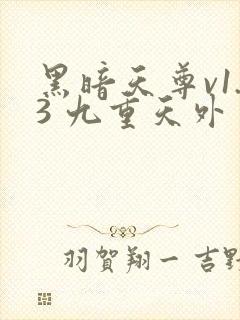 黑暗天尊v1.
3 九重天外
羽賀翔一 吉野